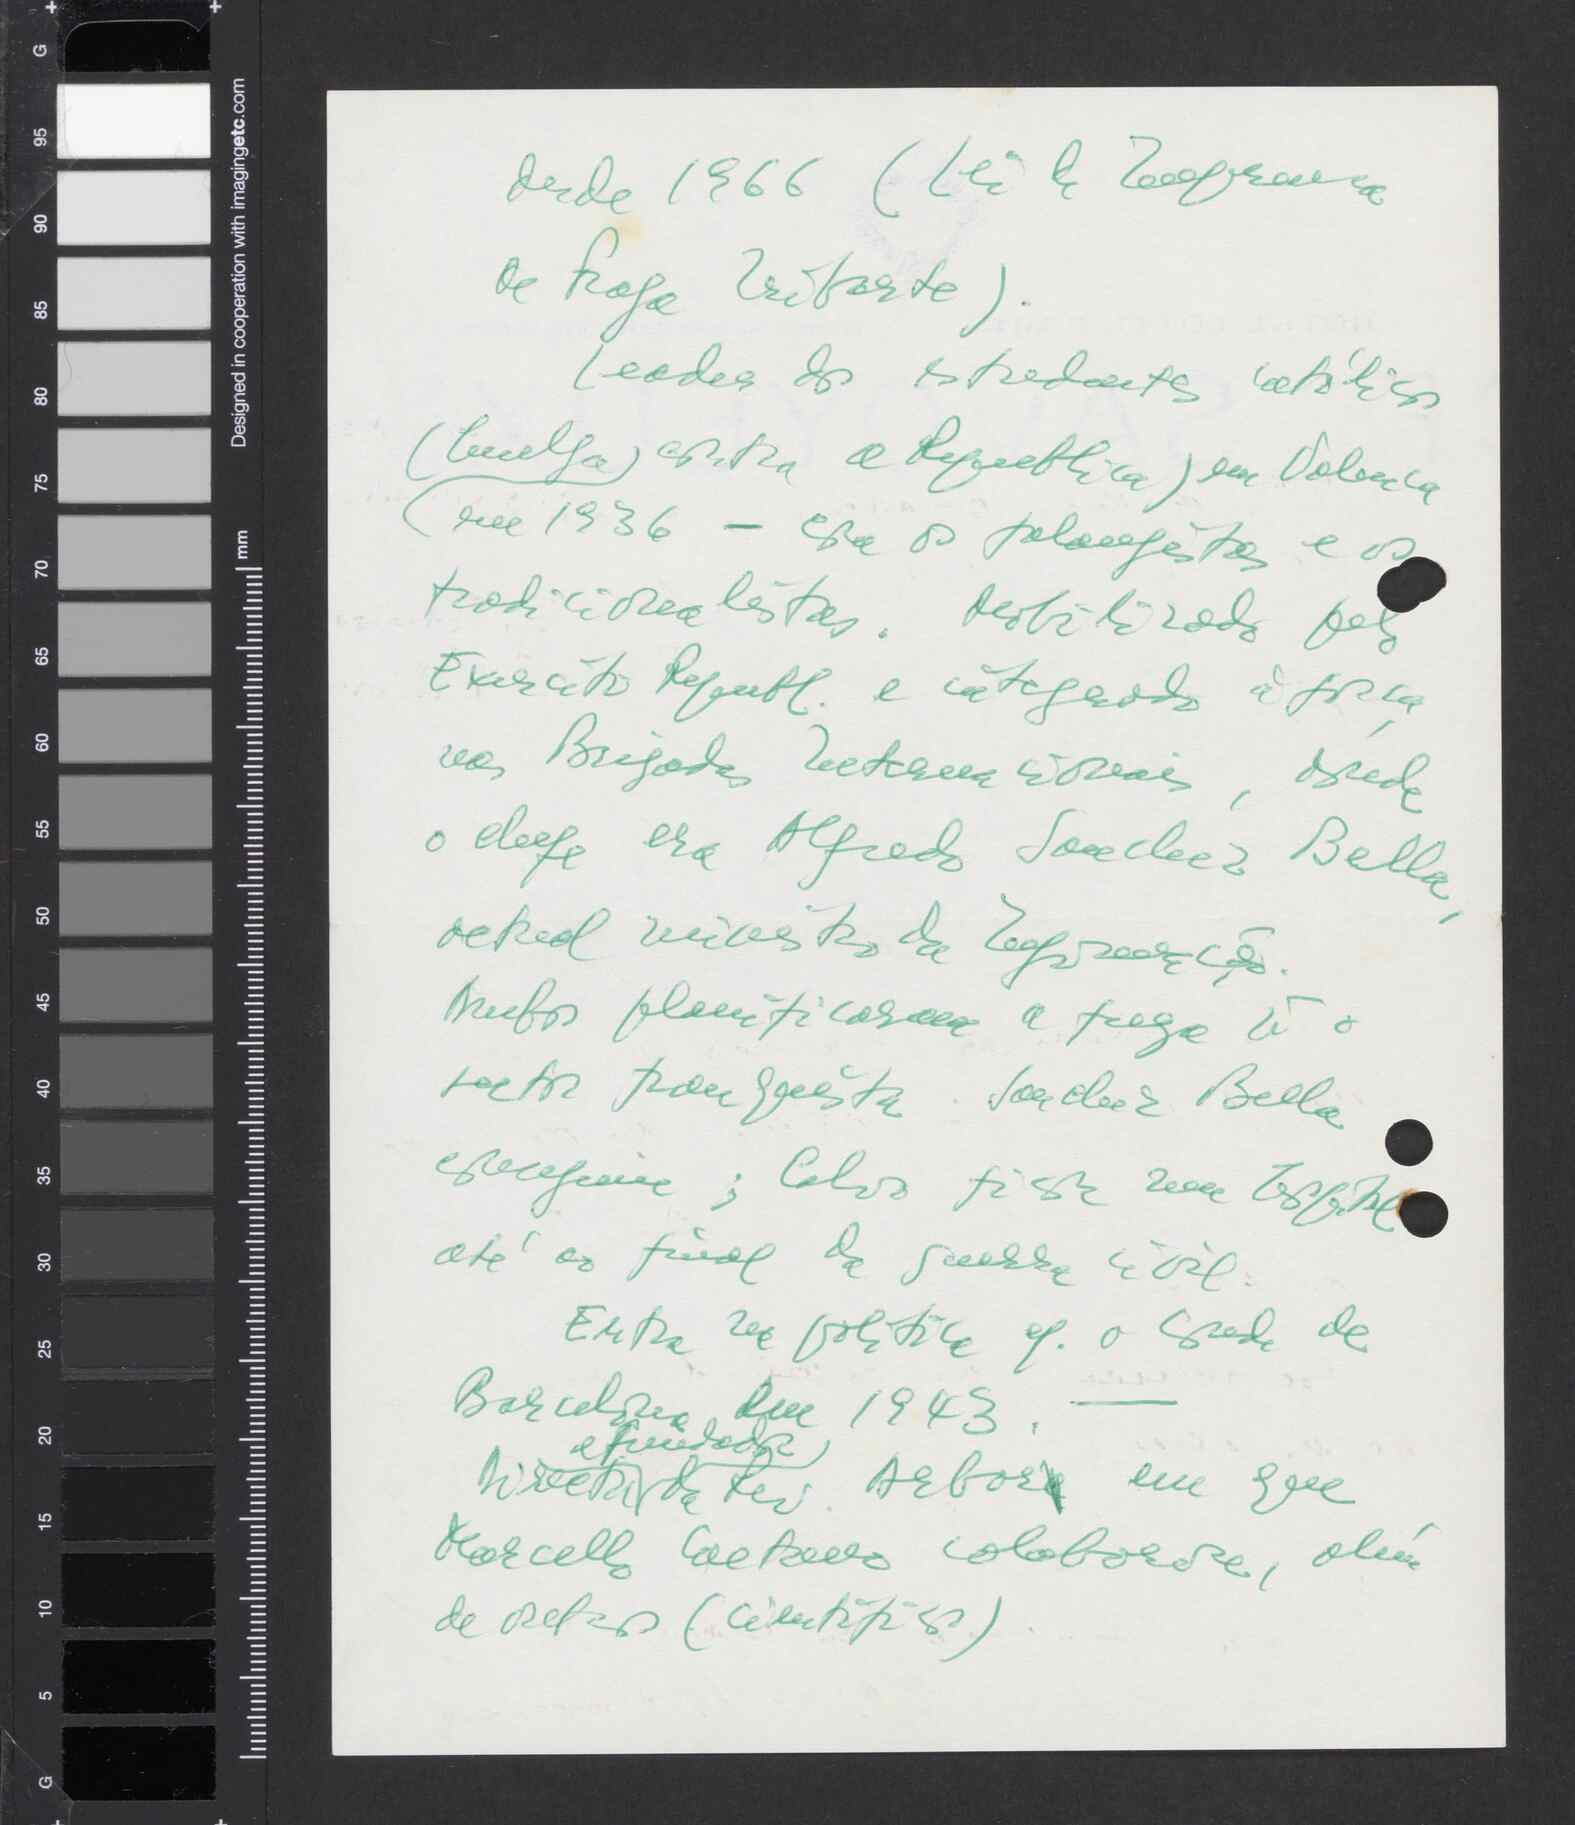 G
95
90
85
80
75
70
65
60
55
50
45
40
35
30
25
20
15
10
5
G
Designed in cooperation with imagingetc.com
mm
desde 1966 (Lei de Imprensa
de Fraga Iribarne).
Leader dos estudantes católicos
(huelga) contra a República) em Valencia
(em 1936 — com os falangistas e os
tradicionalistas. Mobilizado pelo
Exercito Republ. e integrado à força
nas Brigadas Internacionais, onde
o chefe era Alfredo Sanchez Bella,
actual ministro da Informação.
Ambos planificaram a fuga p.ª o
sector franquista. Sanchez Bella
consegue; Calvo fica num hospital
até ao final da guerra civil.
Entra na política c/. o Conde de
Barcelona em 1943. —
e fundador
Director da Rev. Arbor em que
Marcello Caetano colaborou, além
de outros (científicos)